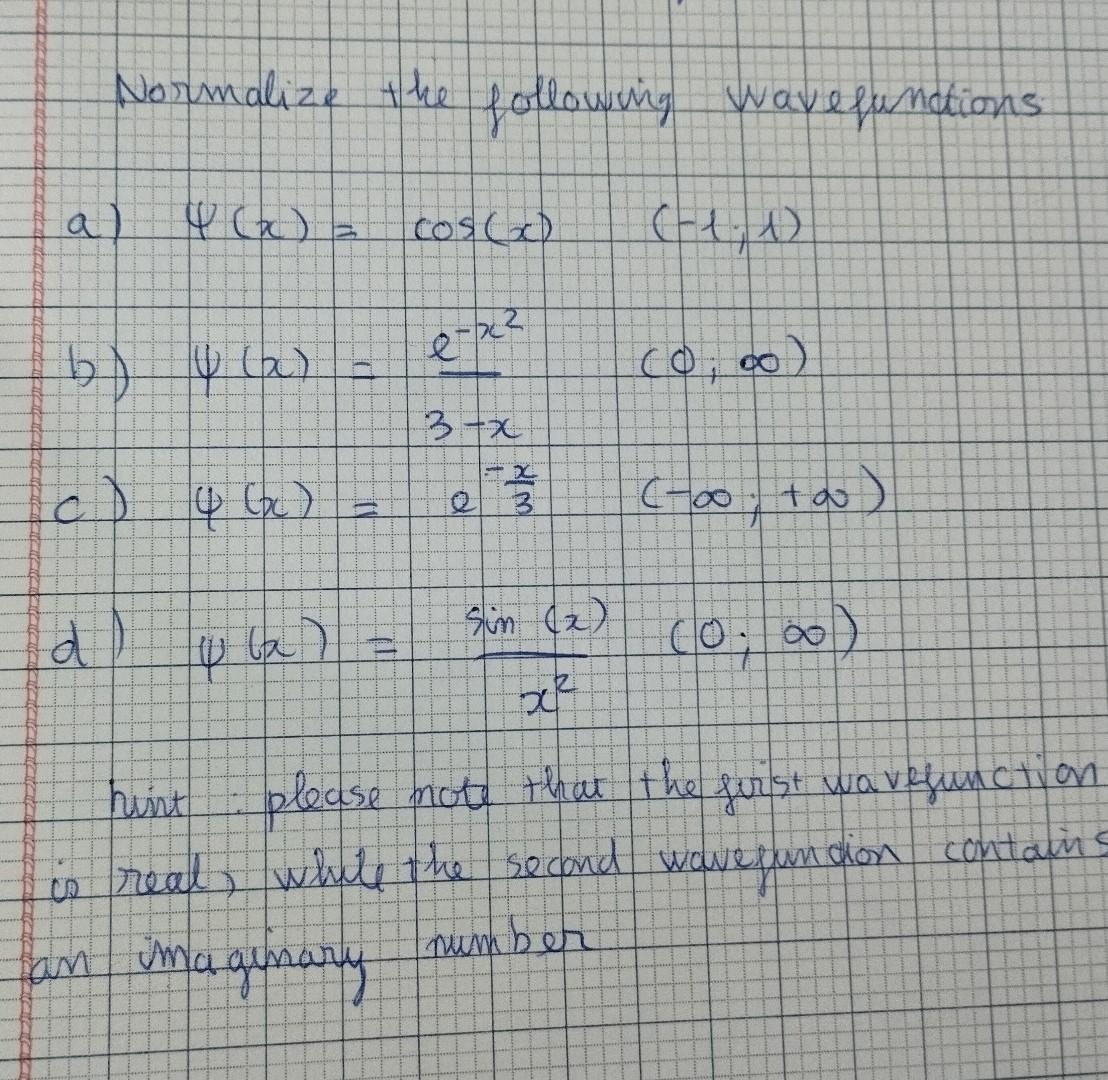 Normalize the following wavefunctions
a) ψ(x) = cos(x) (-1; 1)
b) ψ(x) = e^{-x^2} / (3-x) (0; ∞)
c) ψ(x) = e^{-x/3} (-∞; +∞)
d) ψ(x) = sin(x) / x^2 (0; ∞)
hint: please note that the first wavefunction
is real, while the second wavefunction contains
an imaginary number